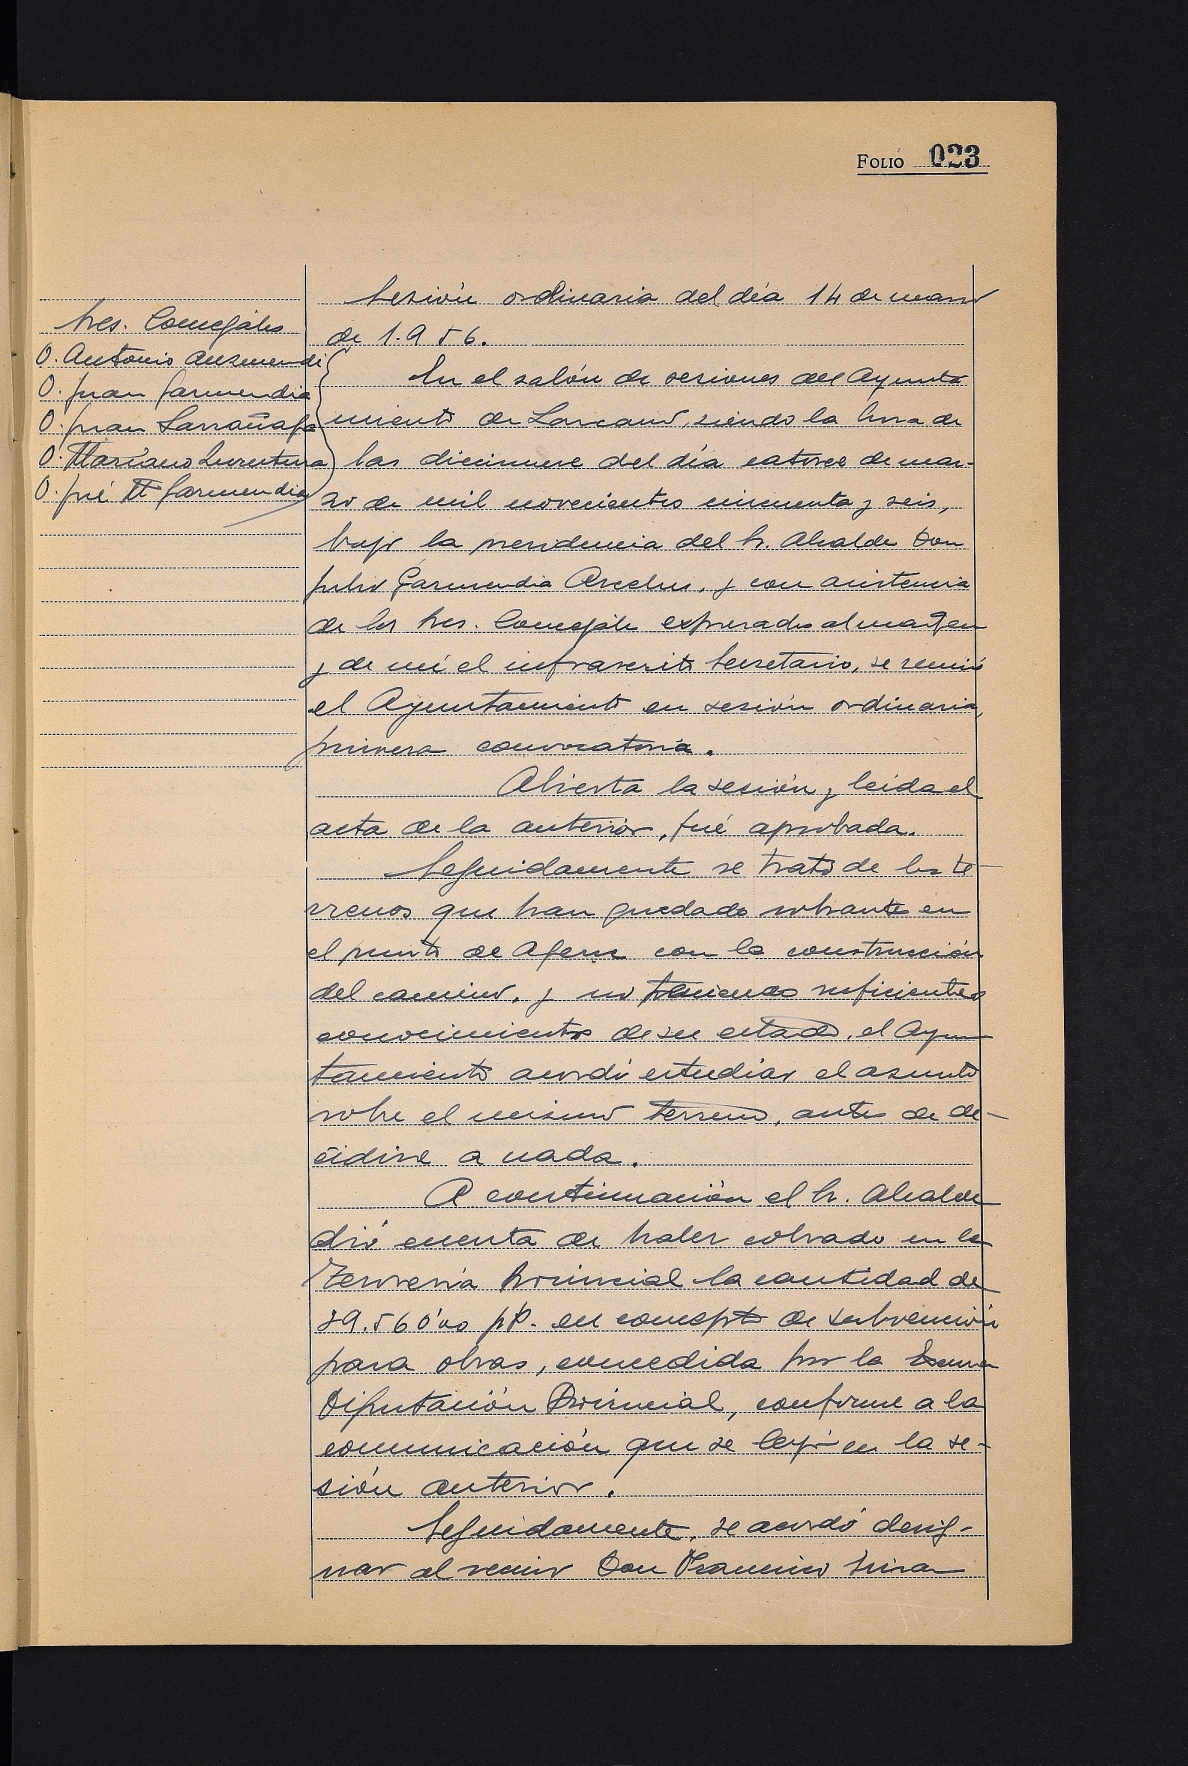 FOLIO 023
Sres. Concejales
D. Antonio Auzmendi
D. Juan Garmendia
D. Juan Larrañaga
D. Mariano Insentuna
D. José M. Garmendia
Sesión ordinaria del día 14 de marzo
de 1.956.
En el salón de sesiones del Ayunta
miento de Lazcano, siendo la hora de
las diecinueve del día catorce de mar-
zo de mil novecientos cincuenta y seis,
bajo la presidencia del Sr. Alcalde Don
Julio Garmendia Arcelus, y con asistencia
de los Sres. Concejales expresados al margen
y de mí el infrascrito Secretario, se reunió
el Ayuntamiento en sesión ordinaria,
primera convocatoria.
Abierta la sesión y leída el
acta de la anterior, fué aprobada.
Seguidamente se trató de los te-
rrenos que han quedado sobrantes en
el punto de con la construcción
del camino, y no suficientes
conocimientos de su estado, el Ayun
tamiento acordó estudiar el asunto
sobre el mismo terreno, antes de de-
cidirse a nada.
A continuación el Sr. Alcalde
dió cuenta de haber cobrado en la
Tesorería Provincial la cantidad de
39.560'00 pts. en concepto de subvención
para obras, concedida por la Excma
Diputación Provincial, conforme a la
comunicación que se leyó en la se-
sión anterior.
Seguidamente, se acordó desig-
nar al vecino Don Francisco